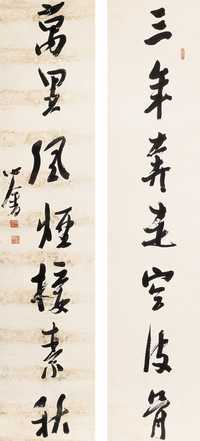 三年奔走空皮骨
萬里風煙接素秋
心畬